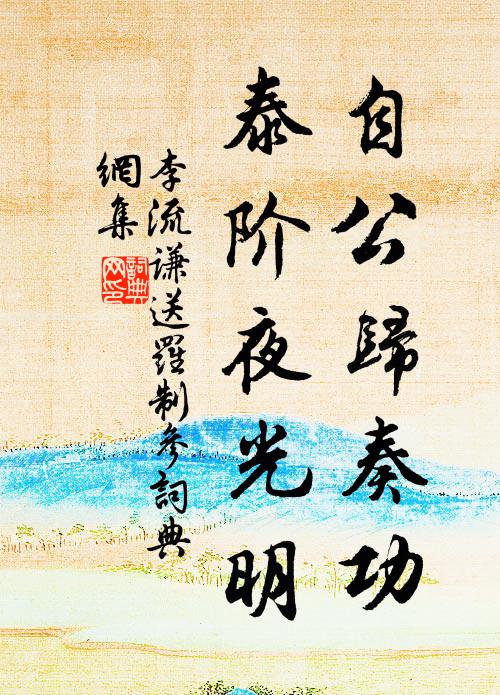 自公歸奏功
泰阶夜光明
李流谦送羅制參詞典
網集
詞典
网印